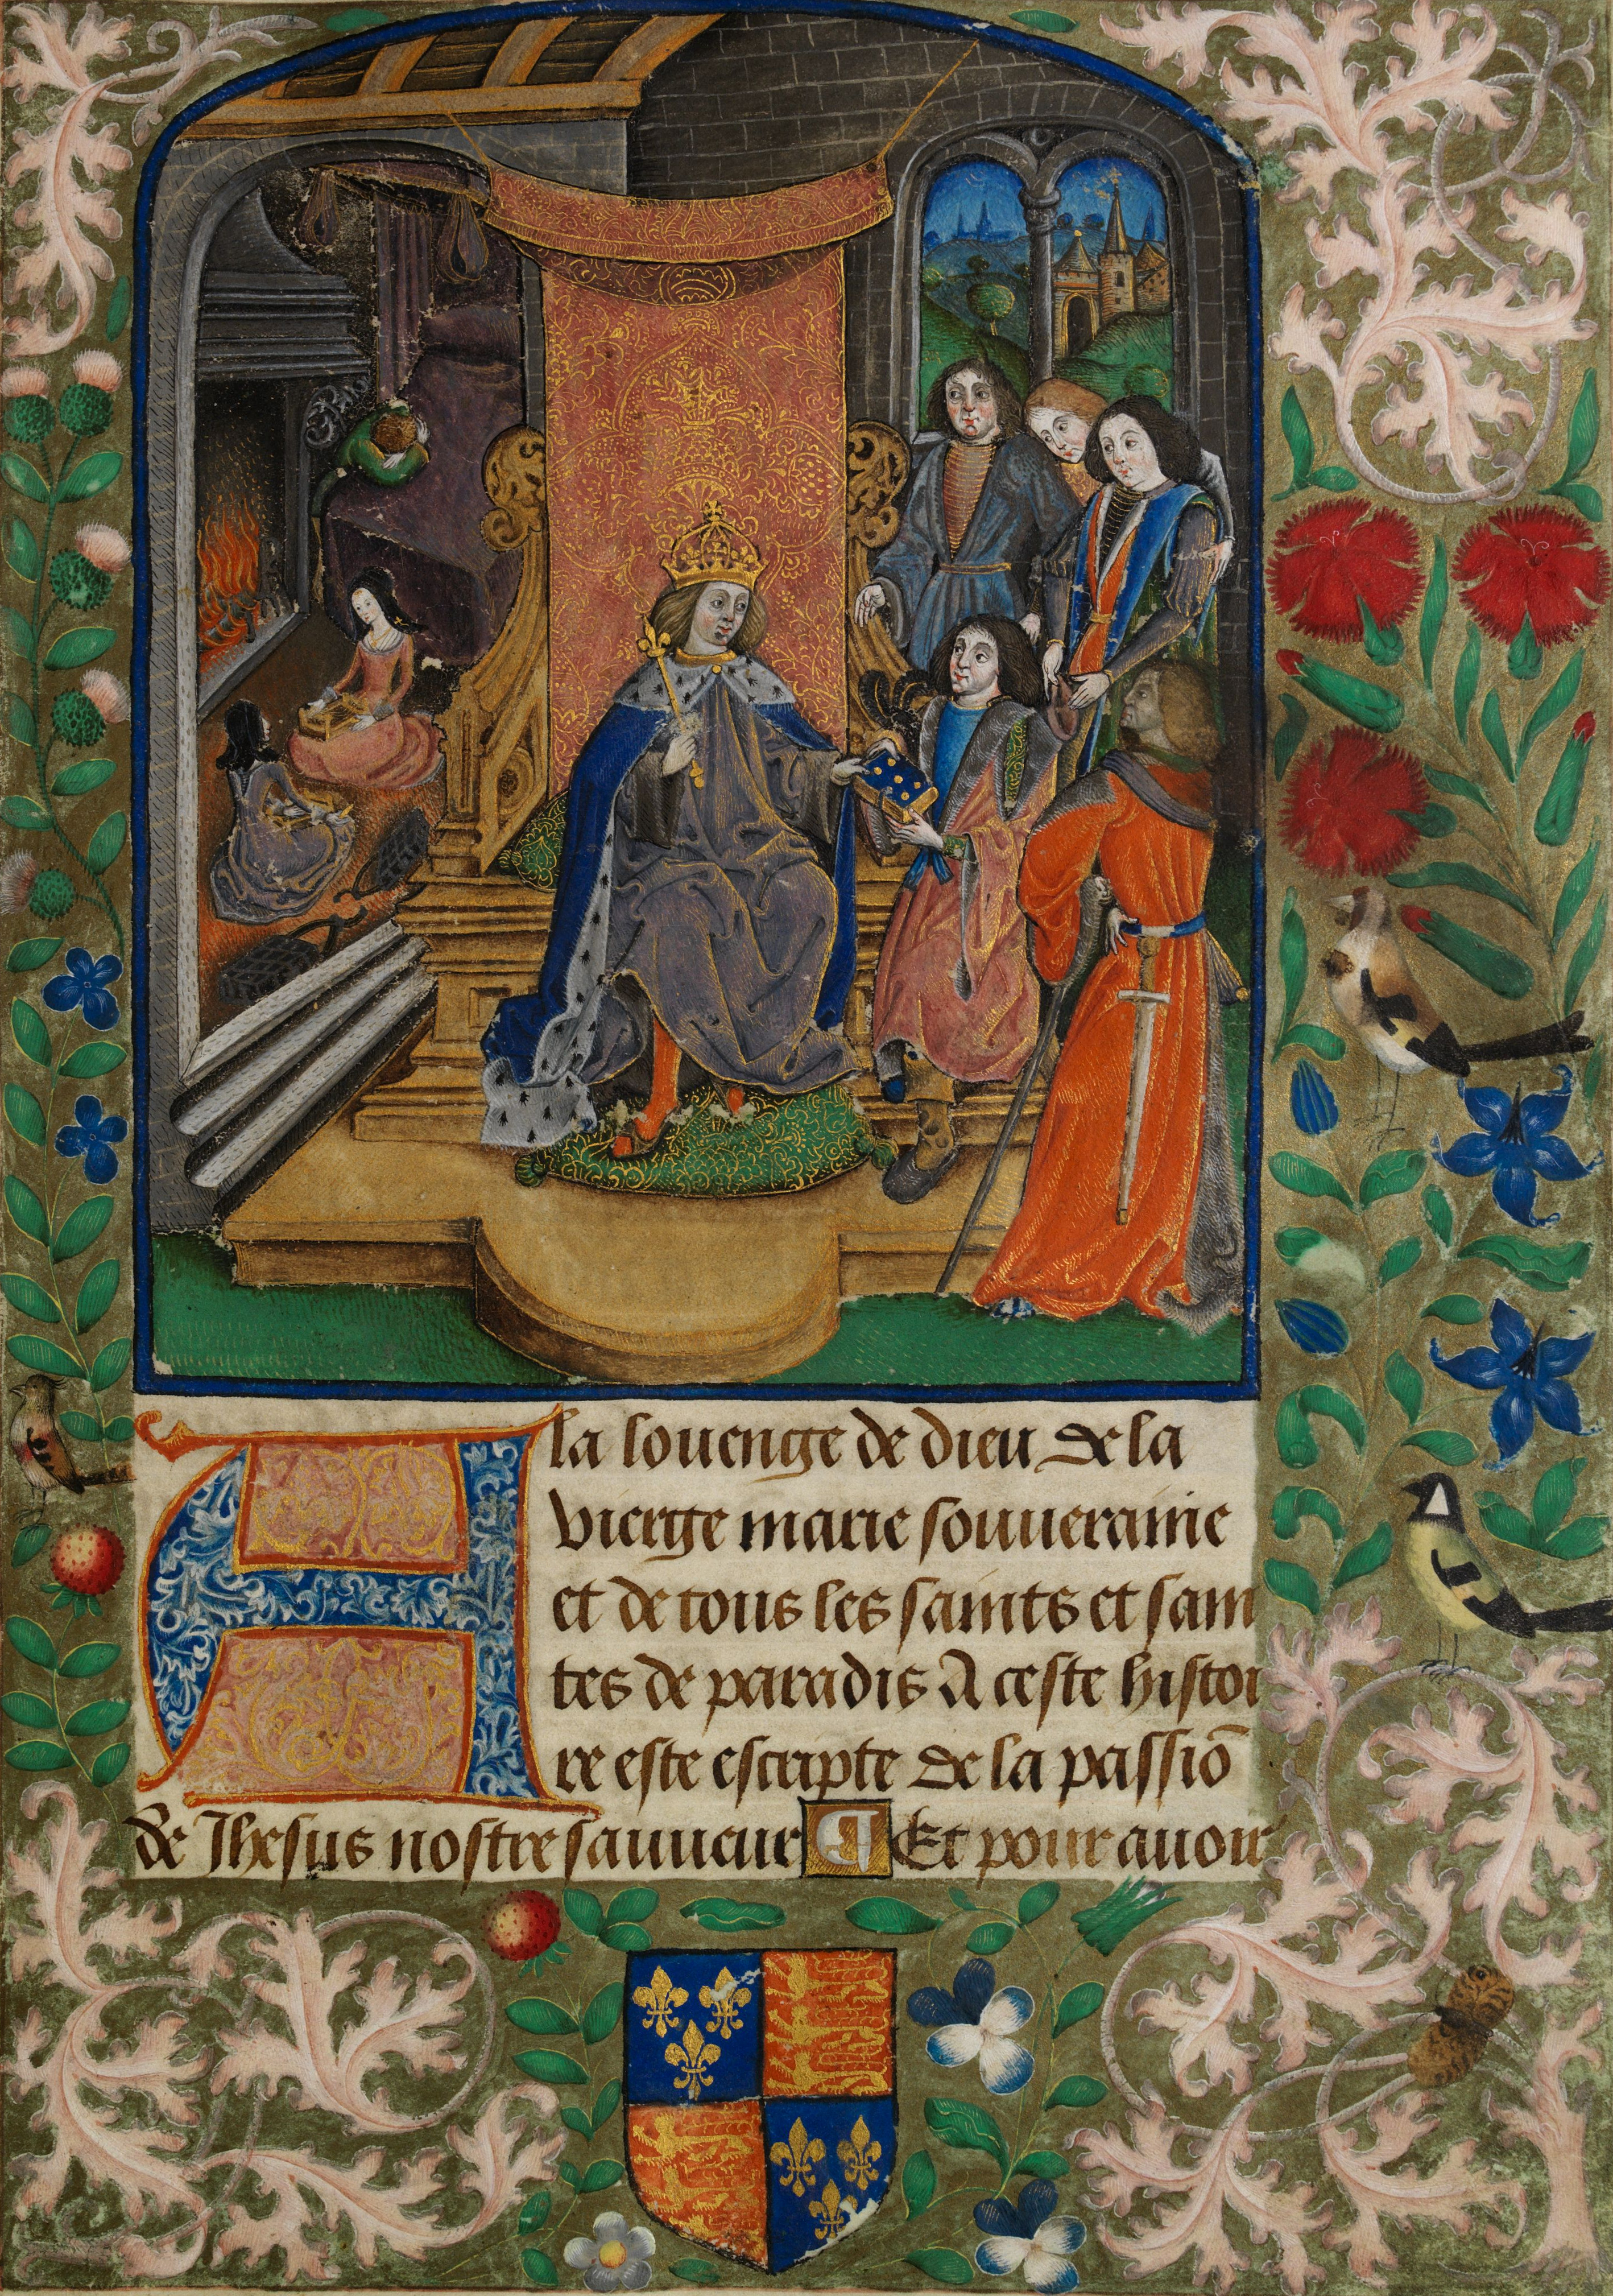 A la louenge de dieu de la
vierge marie souueraine
et de tous les saints et sain
tes de paradis A ceste histoi
re este escripte de la passiō
de Jhesus nostre sauueur ¶ Et pour auoir